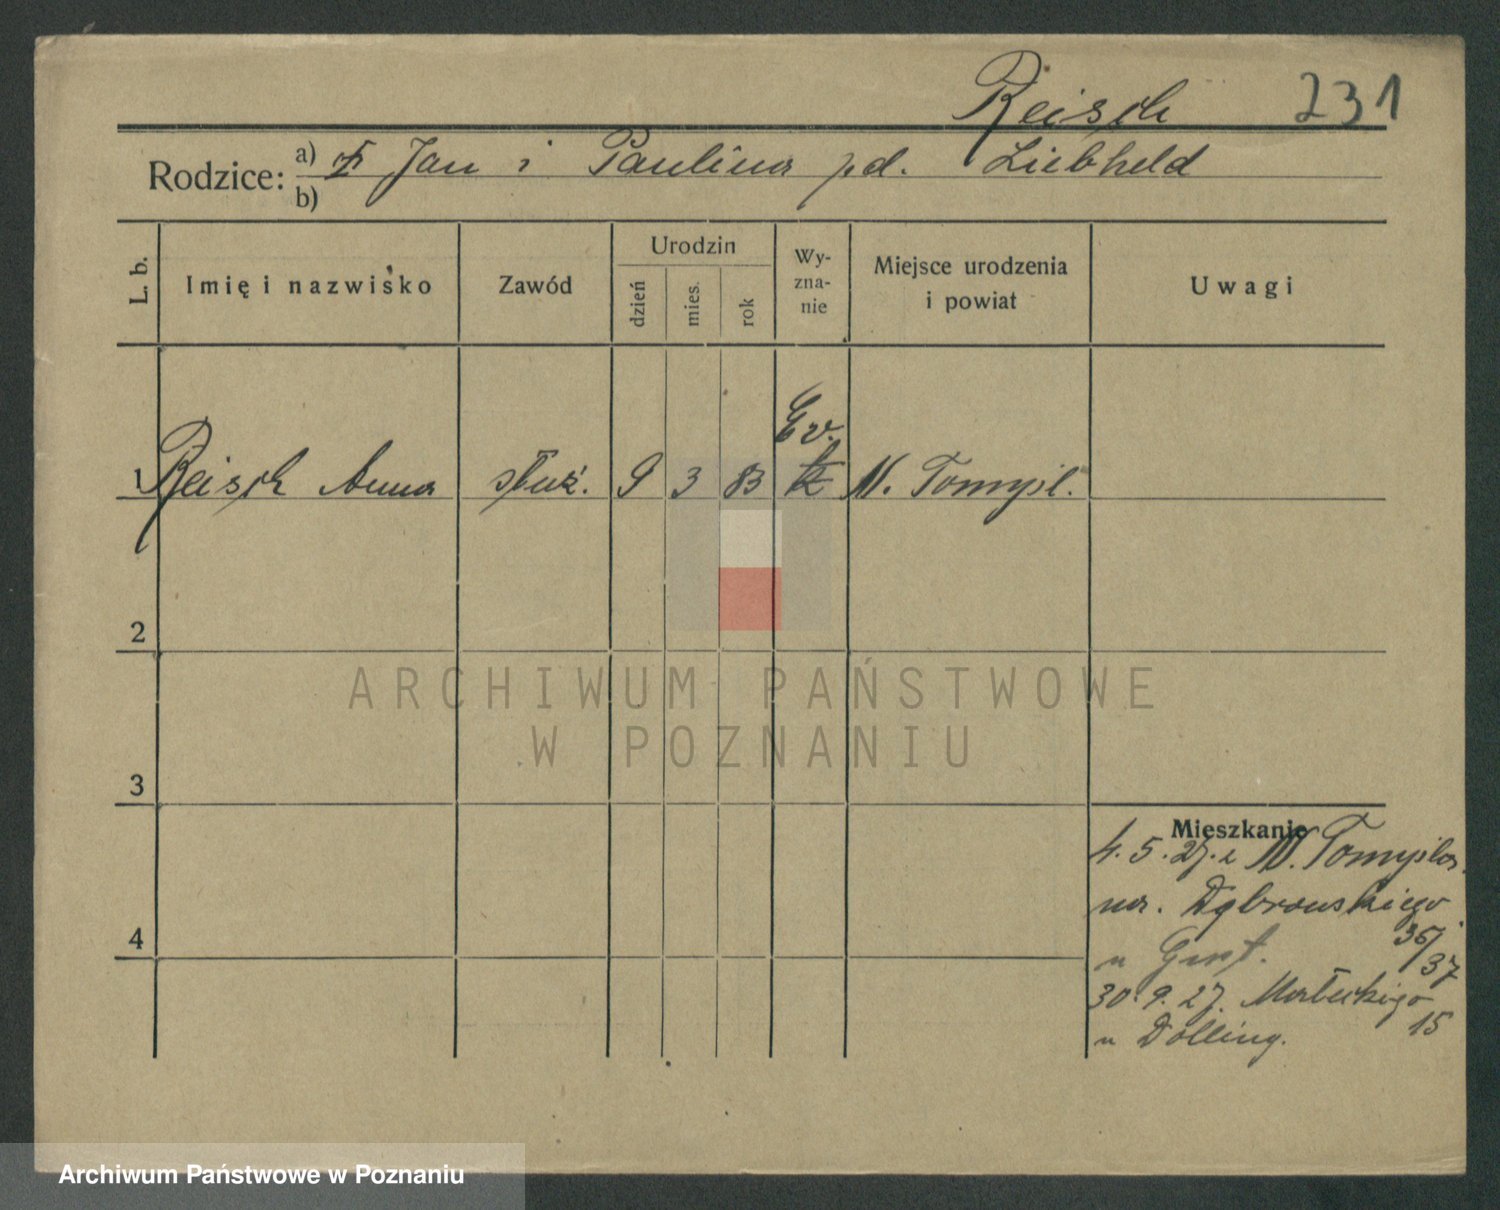 Reisch 231
Rodzice: a) Jan i Paulina pd. Liebheld
b)
L. b.
Imię i nazwisko
Zawód
Urodzin
dzień
mies.
rok
Wy-
zna-
nie
Miejsce urodzenia
i powiat
Uwagi
Ev.
1 Reisch Anna służ. 9 3 83 N. Tomyśl.
2
3
4
Mieszkanie
4. 5. 27. z N. Tomyśla
na. Dąbrowskiego
35/37
u Gust.
30. 9. 27. Małeckiego
15
u Dölling.
ARCHIWUM PAŃSTWOWE
W POZNANIU
Archiwum Państwowe w Poznaniu